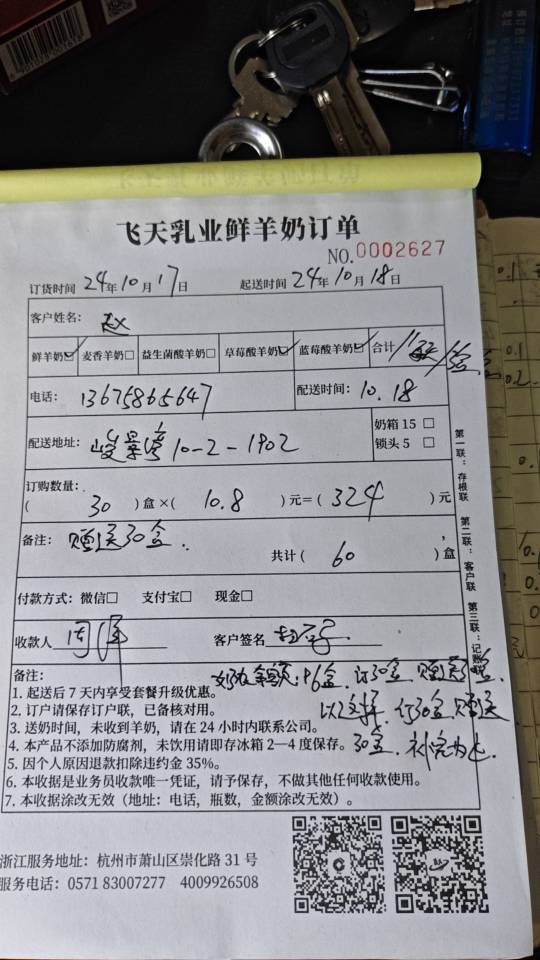 飞天乳业鲜羊奶订单
NO.0002627
订货时间 24年10月17日 起送时间 24年10月18日
客户姓名： 赵
鲜羊奶☑ 麦香羊奶□ 益生菌酸羊奶□ 草莓酸羊奶☑ 蓝莓酸羊奶☑ 合计
电话： 13675865647 配送时间： 10.18
配送地址： 峻景湾10-2-1902
奶箱 15 □
锁头 5 □
订购数量：
( 30 ) 盒 × ( 10.8 ) 元 = ( 324 ) 元
备注： 赠送30盒.
共计 ( 60 ) 盒
付款方式：微信□ 支付宝□ 现金□
收款人 周 客户签名
第一联：存根联 第二联：客户联 第三联：记账联
备注： 订30盒 赠送
1. 起送后 7 天内享受套餐升级优惠。
以这样 订30盒 赠送
2. 订户请保存订户联，已备核对用。
3. 送奶时间，未收到羊奶，请在 24 小时内联系公司。
30盒.
4. 本产品不添加防腐剂，未饮用请即存冰箱 2—4 度保存。
5. 因个人原因退款扣除违约金 35%。
6. 本收据是业务员收款唯一凭证，请予保存，不做其他任何收款使用。
7. 本收据涂改无效（地址：电话，瓶数，金额涂改无效）。
浙江服务地址：杭州市萧山区崇化路 31 号
服务电话：0571 83007277 4009926508